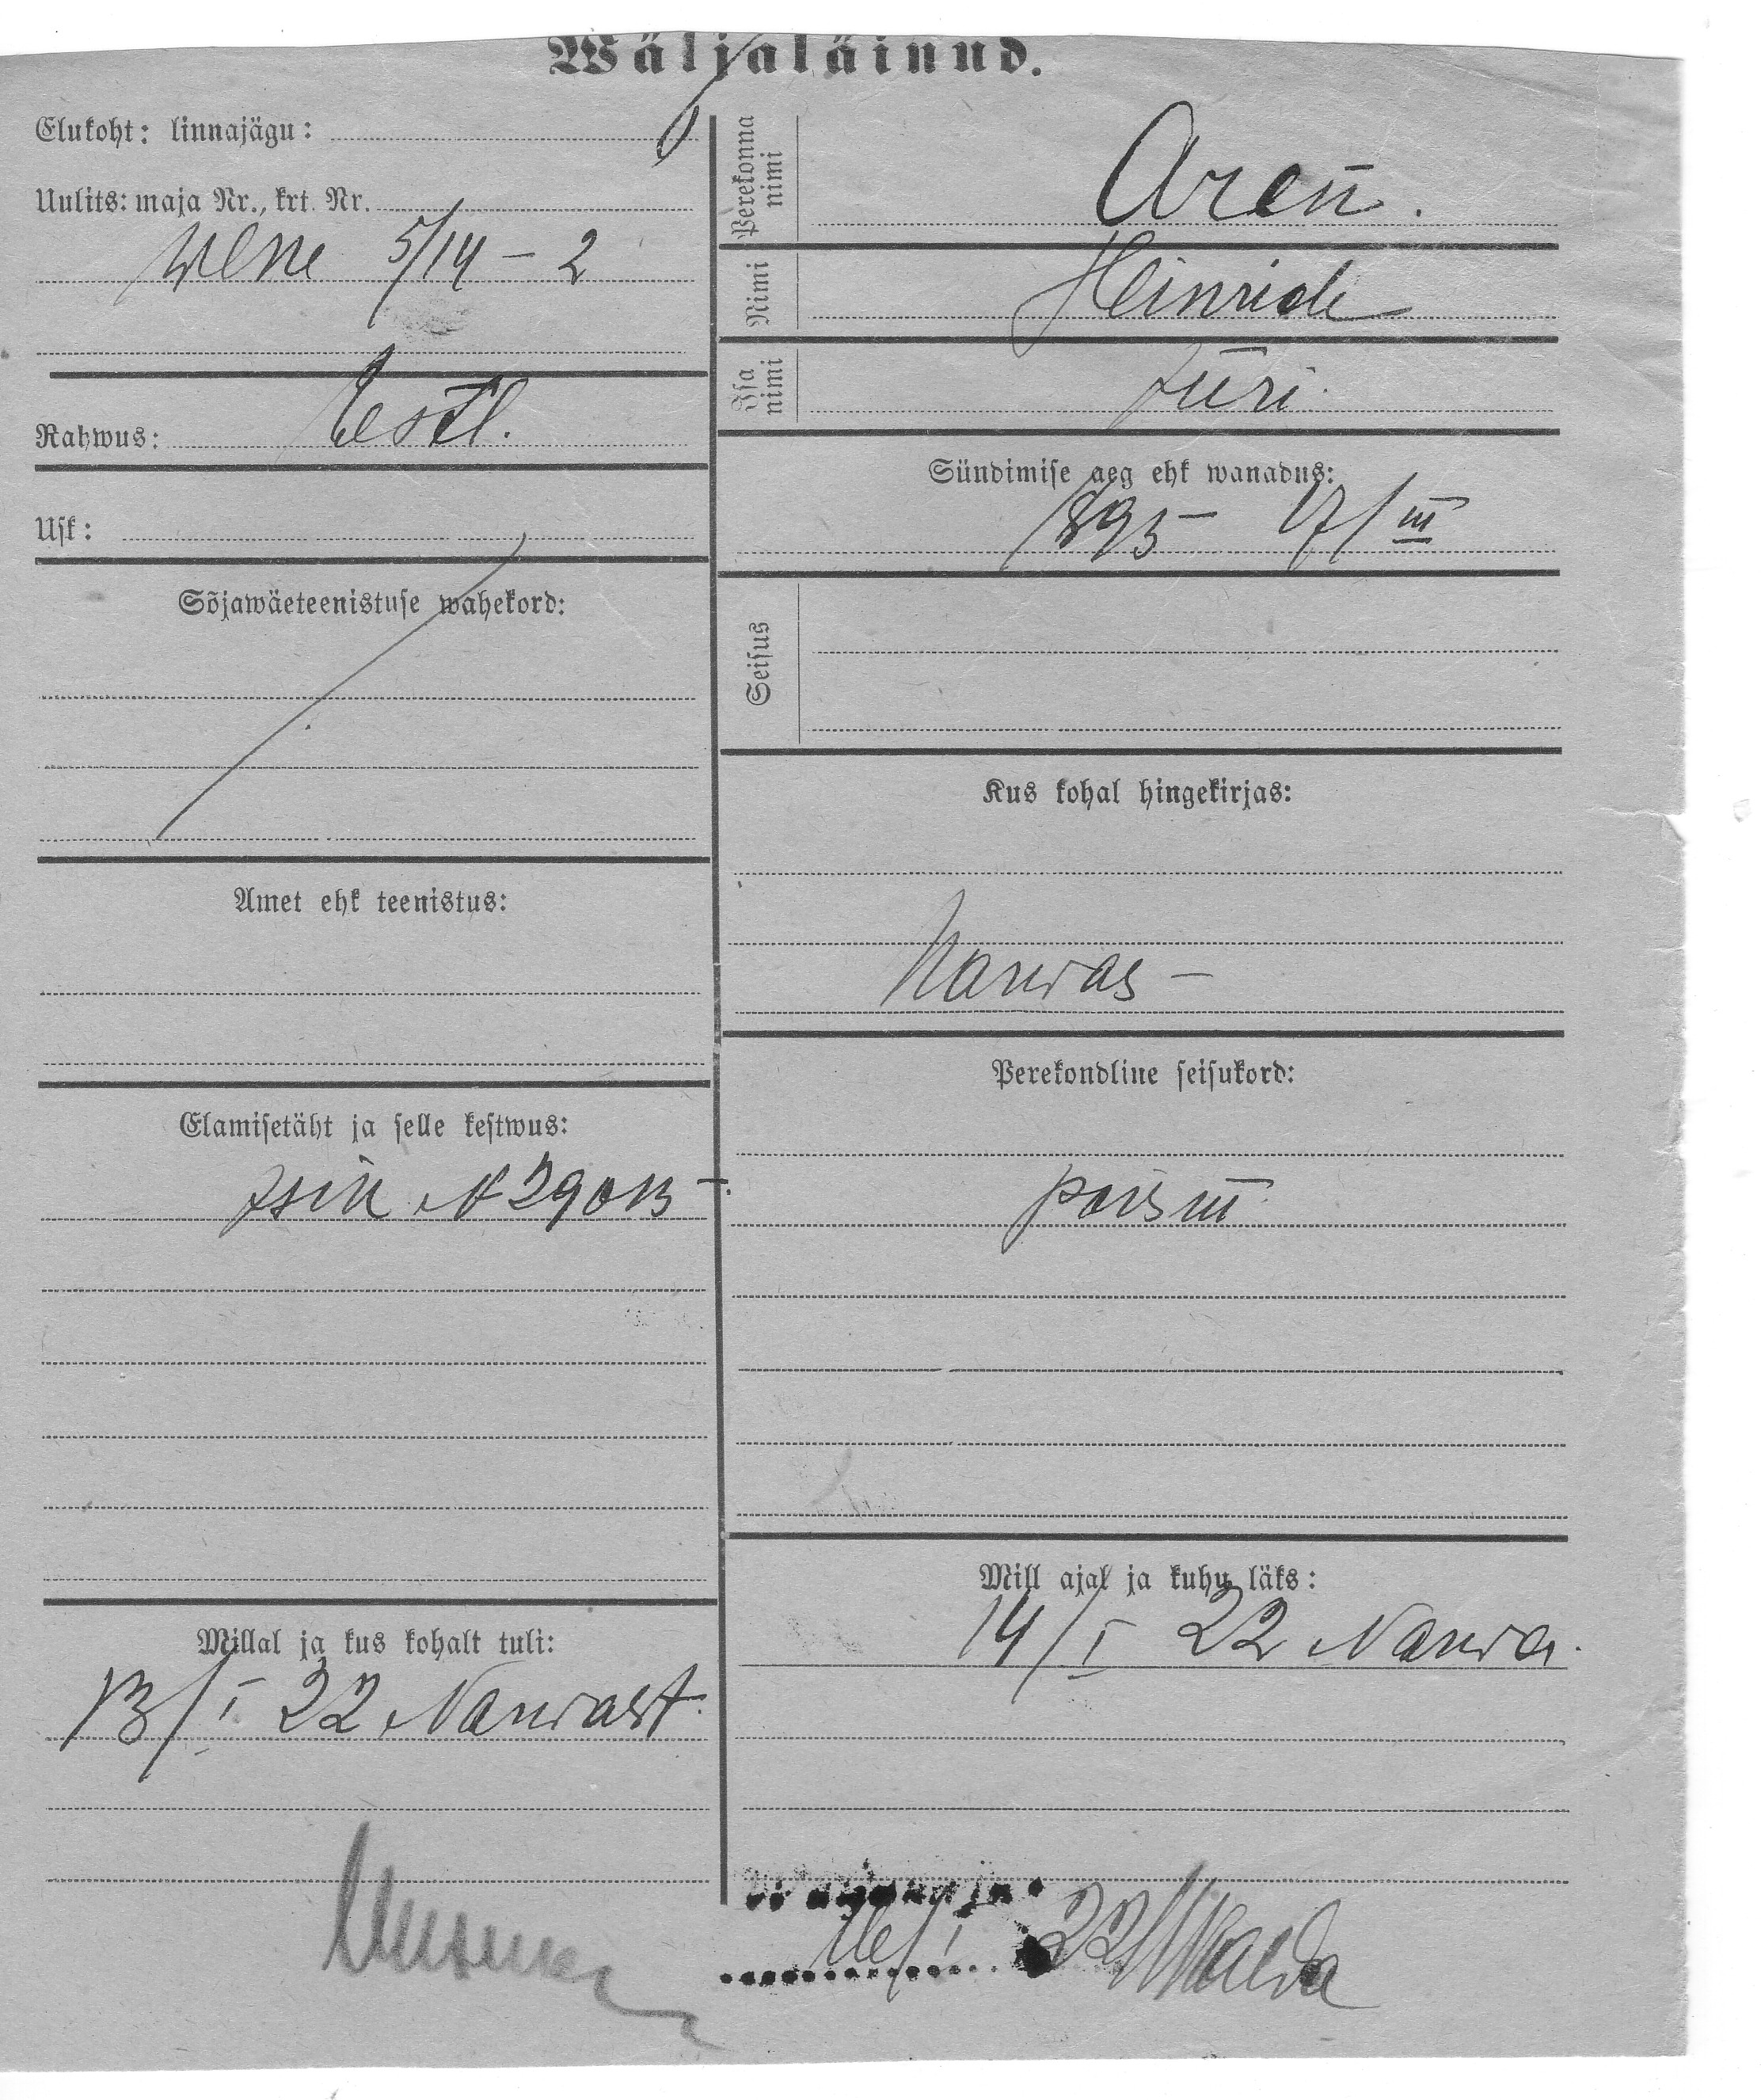 Wäljaläinud.
Elukoht: linnajägu:
Uulits: maja Nr., krt. Nr.
Wene 5/14 – 2
Rahwus: Estl.
Usk:
Sõjawäeteenistuse wahekord:
Amet ehk teenistus:
Elamisetäht ja selle kestwus:
N 29013 –
Millal ja kus kohalt tuli:
13/I 22 Narwast.
Perekonna nimi
Aren.
Nimi
Heinrich
Isa nimi
Jüri.
Sündimise aeg ehk wanadus:
1895 17/III
Seisus
Kus kohal hingekirjas:
Narwas –
Perekondline seisukord:
poism
Mill ajal ja kuhu läks:
14/I 22 Narwa.
22